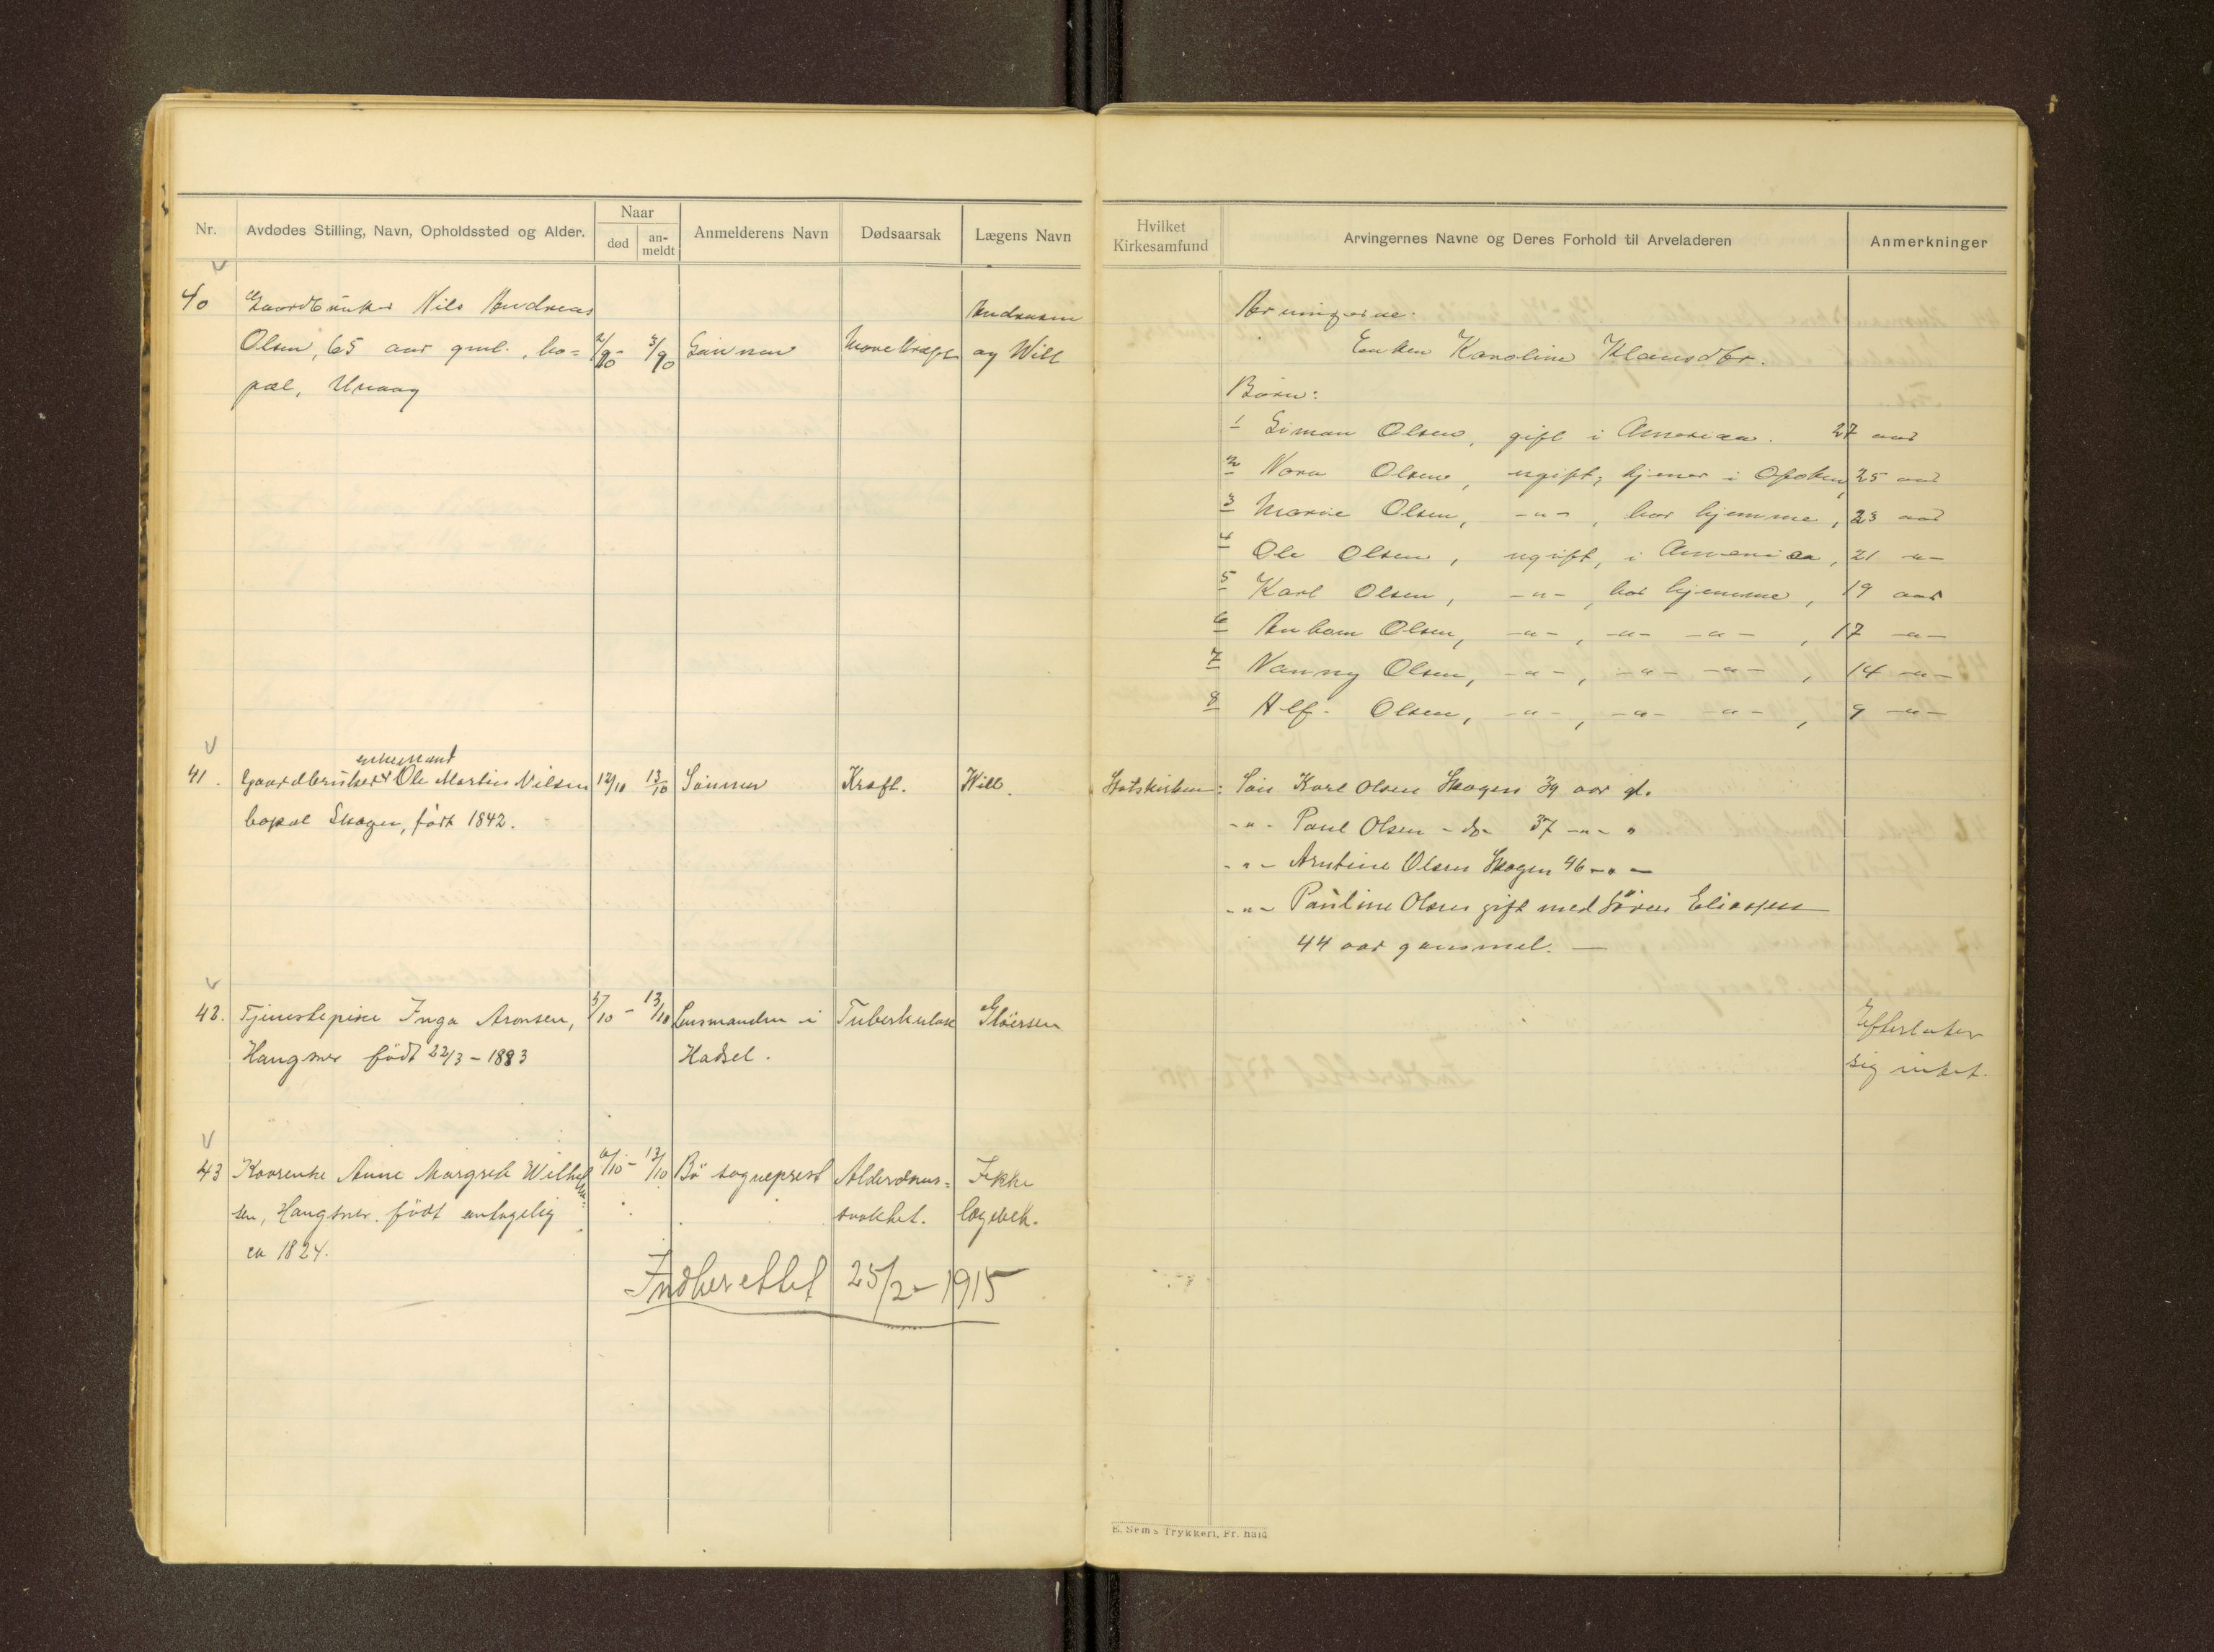 Nr.
Avdødes Stilling, Navn, Opholdssted og Alder.
Naar
død
an-
meldt
Anmelderens Navn
Dødsaarsak
Lægens Navn
Hvilket
Kirkesamfund
Arvingernes Navne og Deres Forhold til Arveladeren
Anmerkninger
40 Gaardbruker Nils Andreas
Andresen
Olsen, 65 aar gml., bo= Sønnen Mavekræft og Will
pæl,
Arvingerne.
Enken Karoline Klausdtr.
Børn:
1 Simon Olsen, gift i America. 27 aar
2 Nora Olsen, ugift, tjener i Ofoten, 25 aar
3 Marie Olsen, -"-, hos hjemme, 23 aar
4 Ole Olsen, ugift, i America, 21 -"-
5 Karl Olsen, -"-, hos hjemme, 19 aar
6 Olsen, -"-, -"- -"-, 17 -"-
7 Nanny Olsen, -"-, -"- -"-, 14 -"-
8 Alf. Olsen, -"-, -"- -"-, 9 -"-
enkemand
41. Gaardbruker Ole Martin Nilsen 12/10 13/10 Sønnen Kræft. Will.
bopæl Skagen, født 1842.
Statskirken: Søn Karl Olsen Skagen 39 aar gl.
-"- Paul Olsen - do - 37 -"-
-"- Arntine Olsen Skagen 46 -"-
-"- Pauline Olsen gift med Sören Eliassen
44 aar gammel. —
42. Tjenestepike Inga Aronsen, 3/10 - 13/10 Lensmanden i Tuberkulose Gløersen
Haugsnes født 22/3 - 1893
Hadsel.
Efterlater
sig intet.
43 Kaarenke Anne Margrete Wilhelm=
sen, Haugsnes. født antagelig
ca 1824.
6/10 - 13/10 Bö sogneprest Alderdoms= Ikke
svakhet. lægebeh.
Indberettet 25/2 - 1915
E. Sem's Trykkeri, Fr.hald